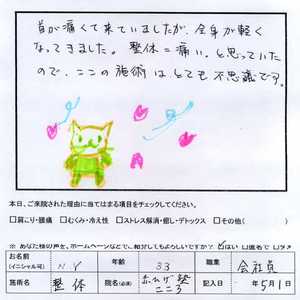 首が痛くて来ていましたが、全身が軽く
なってきました。整体＝痛い。と思っていた
ので、ここの施術はとても不思議です。
本日、ご来院された理由に当てはまる項目をチェックしてください。
□肩こり・腰痛 □むくみ・冷え性 □ストレス解消・癒し・デトックス □その他( )
※あなた様の声を、ホームページなどで、紹介してもよろしいですか? はい □匿名で □
お名前 (イニシャル可) N.Y 年齢 33 職業 会社員
施術名 整体 院名(必須) こころ 記入日 年5月1日